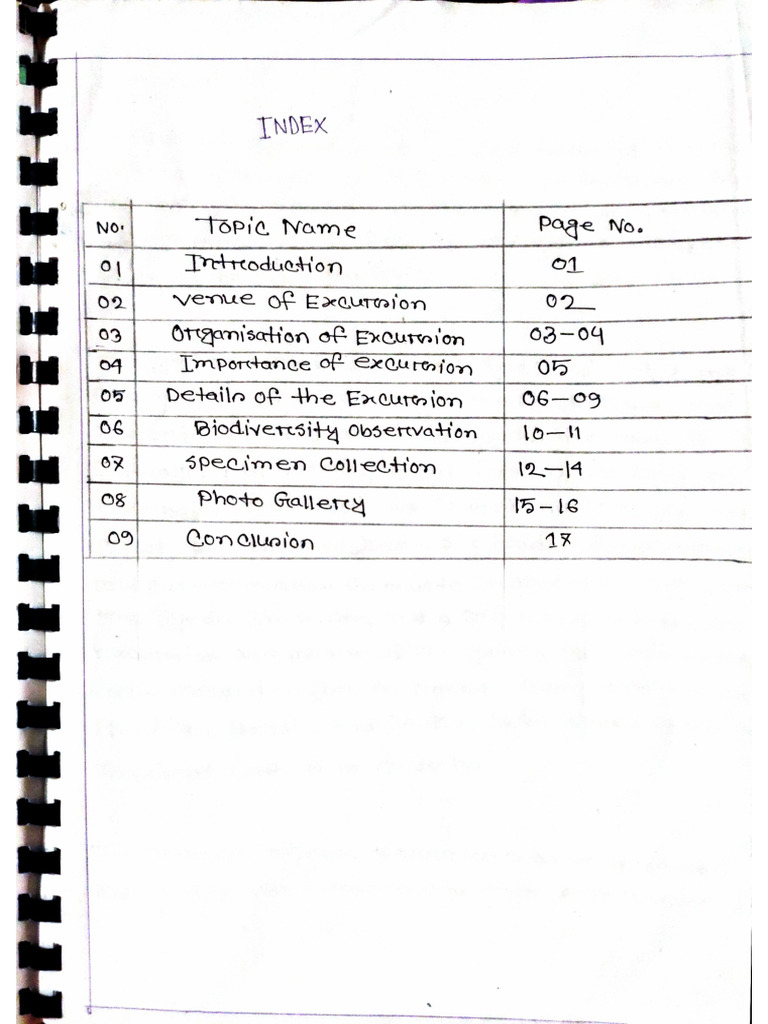 INDEX
No. Topic Name Page No.
01 Introduction 01
02 Venue of Excursion 02
03 Organisation of Excursion 03-04
04 Importance of excursion 05
05 Details of the Excursion 06-09
06 Biodiversity observation 10-11
07 Specimen Collection 12-14
08 Photo Gallery 15-16
09 Conclusion 17